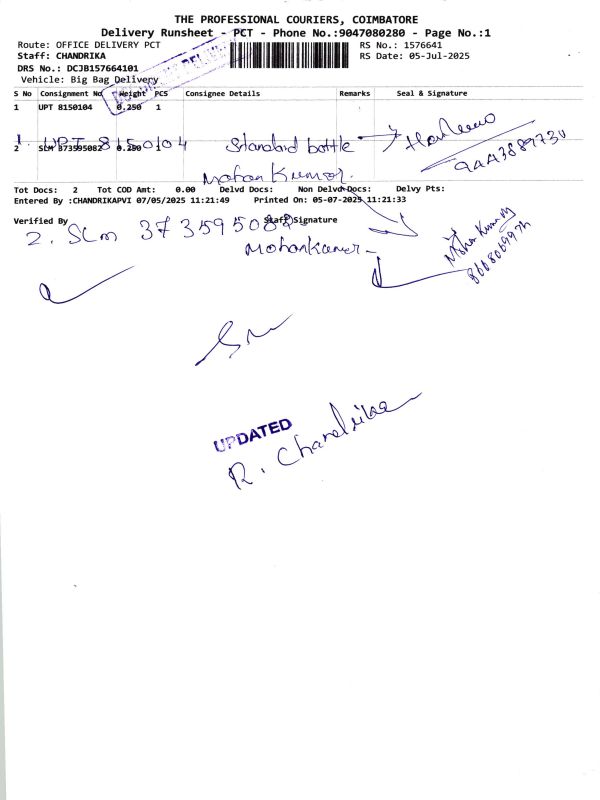 THE PROFESSIONAL COURIERS, COIMBATORE
Delivery Runsheet - PCT - Phone No.:9047080280 - Page No.:1
Route: OFFICE DELIVERY PCT
RS No.: 1576641
Staff: CHANDRIKA
RS Date: 05-Jul-2025
DRS No.: DCJB157664101
Vehicle: Big Bag Delivery
S No Consignment No Weight PCS Consignee Details Remarks Seal & Signature
1 UPT 8150104 0.250 1
1. UPT 8150104 Standard bottle
2 SLM 373595082 0.250 1
Mohan Kumar.
Tot Docs: 2 Tot COD Amt: 0.00 Delvd Docs: Non Delvd Docs: Delvy Pts:
Entered By :CHANDRIKAPVI 07/05/2025 11:21:49 Printed On: 05-07-2025 11:21:33
Verified By Staff Signature
2. SLm 373595082 Mohankumar
Mohan Kumar
UPDATED
R. Chandrika